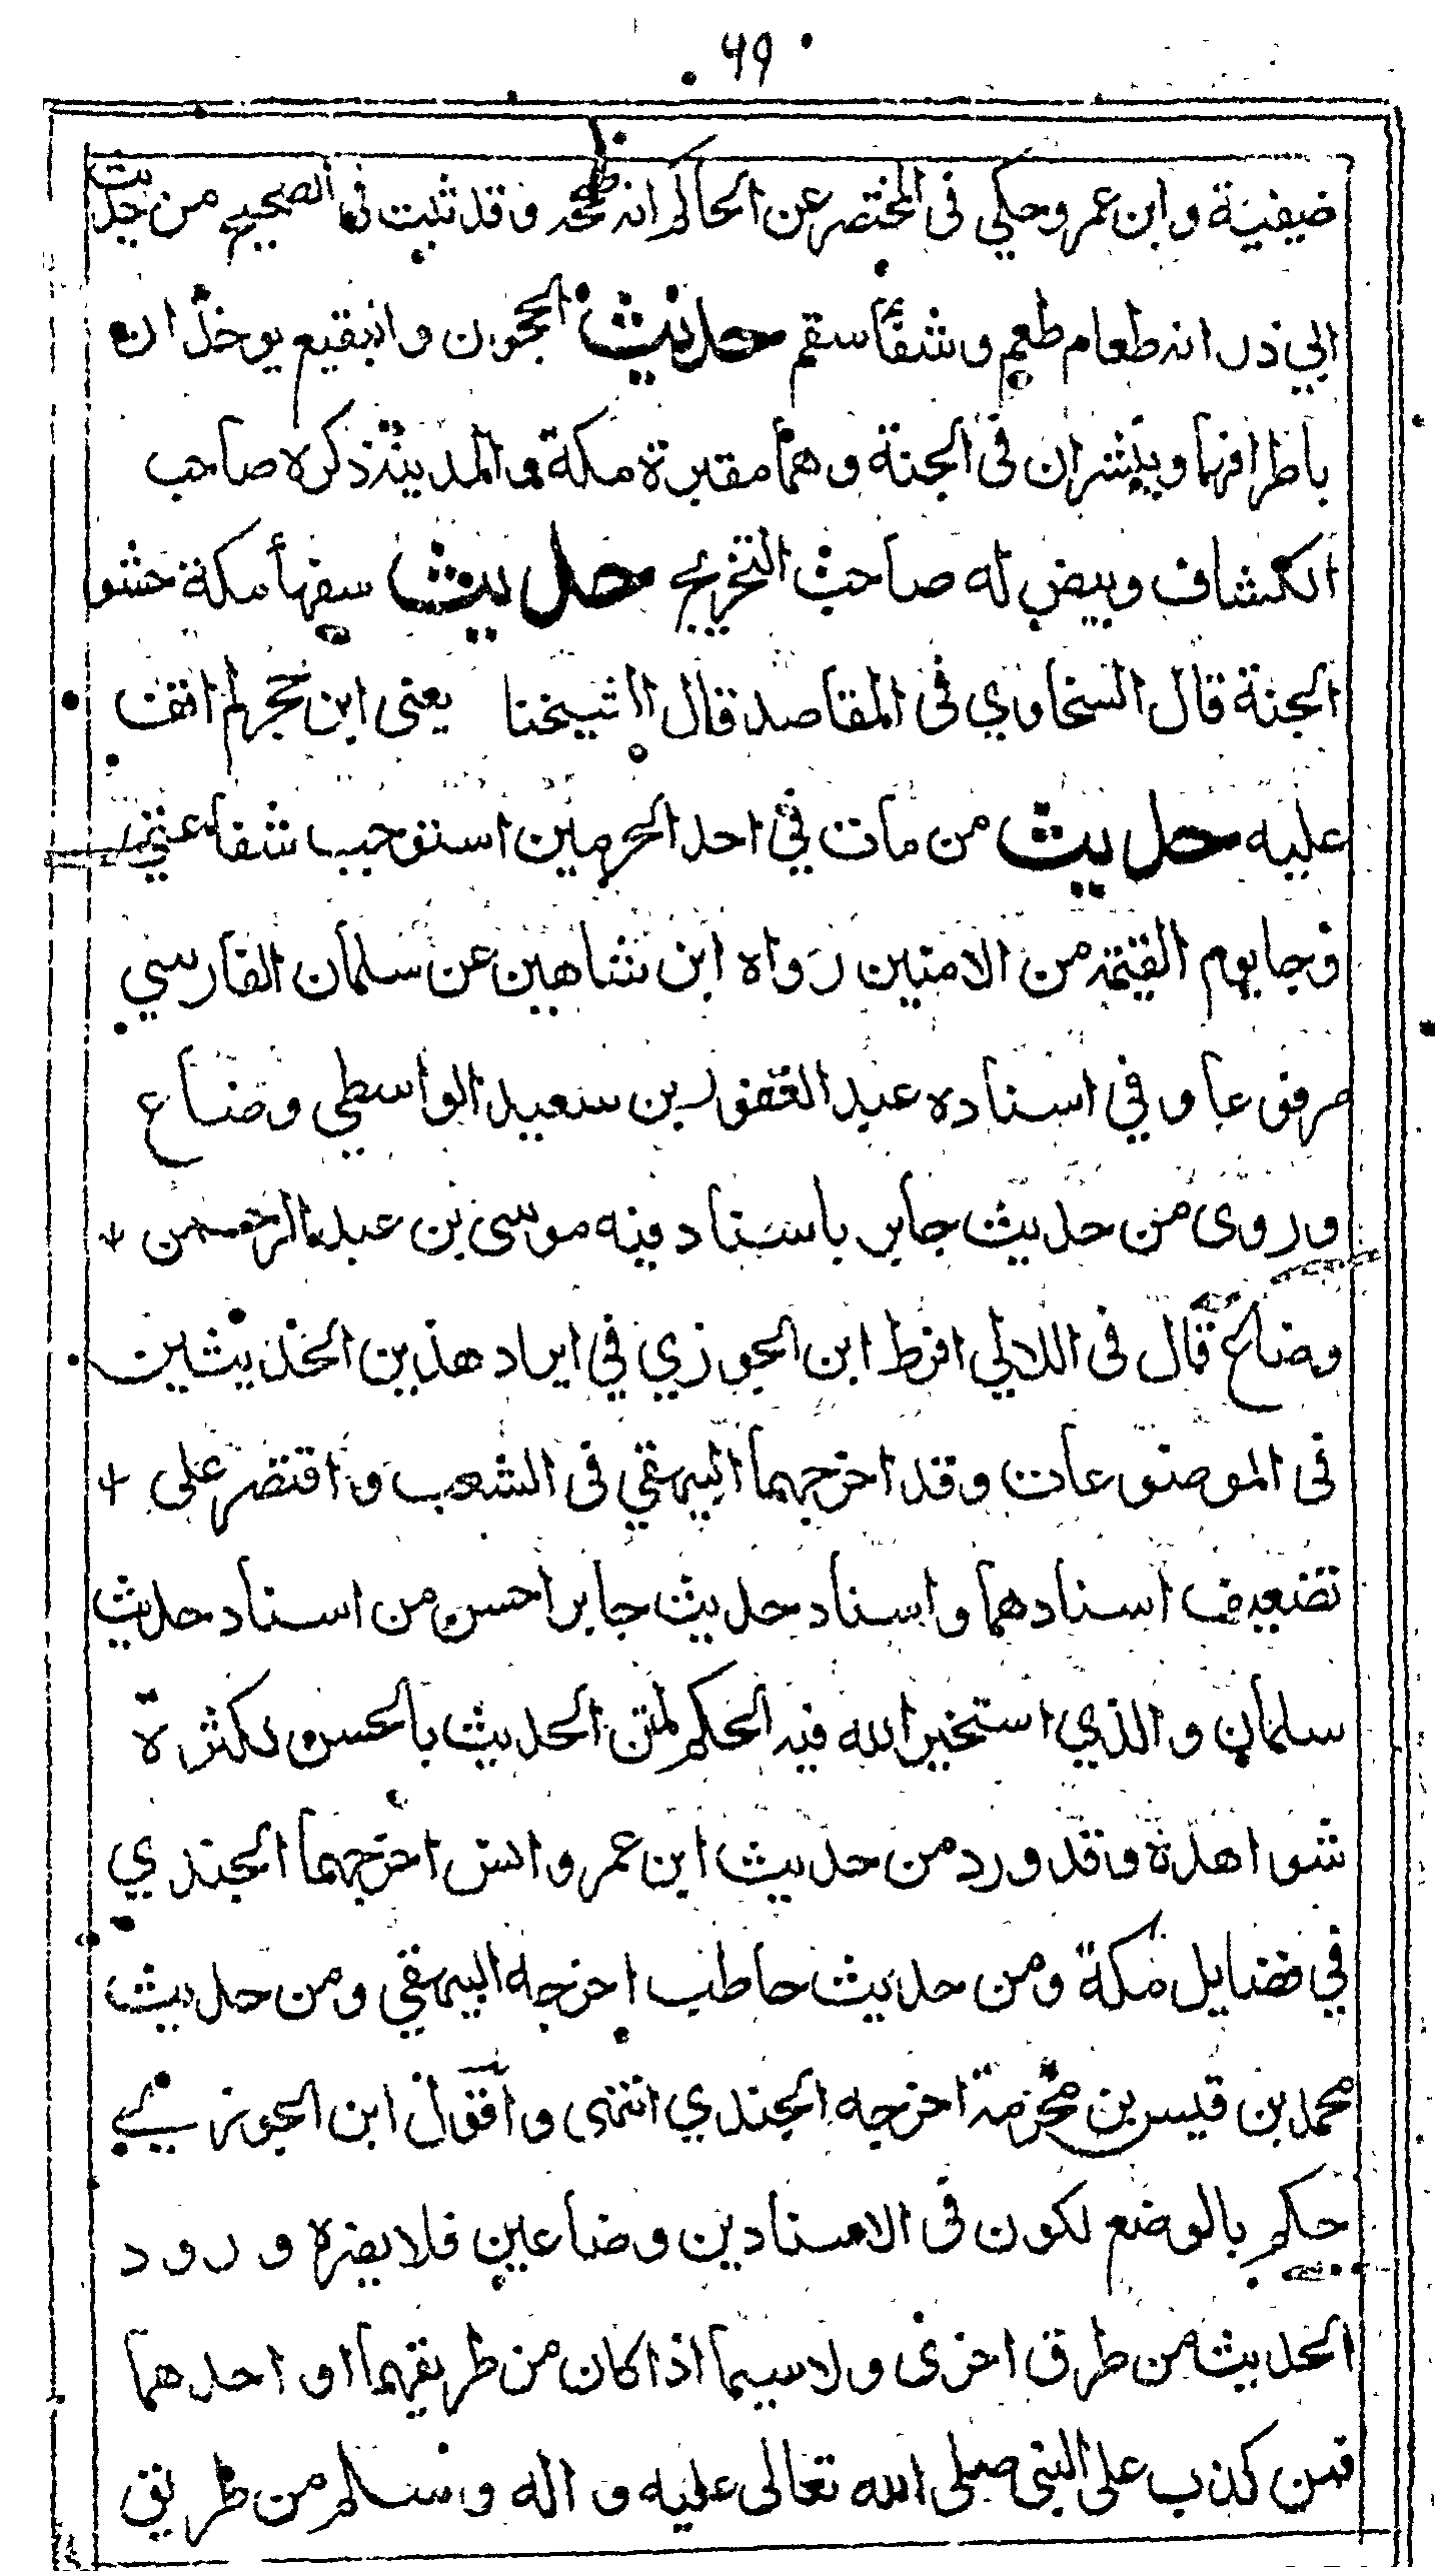 ٦٩
ضيفية وابن عمرو حكي في المختصر عن الحاكم انه صححه وقد ثبت في الصحيح من حديث
ابي ذر انه طعام طعم وشفأ سقم حديث الحجون والبقيع يوخذان
باطرافهما وينشران في الجنة وهما مقبرة مكة والمدينة ذكره صاحب
الكشاف وبيض له صاحب التخريج حديث سفهأ مكة حشو
الجنة قال السخاوي في المقاصد قال شيخنا يعنى ابن حجر لم اقف
عليه حديث من مات في احد الحرمين استوجب شفاعتي
وجا يوم القيمة من الامنين رواه ابن شاهين عن سلمان الفارسي
مرفوعا وفي اسناده عبد الغفور بن سعيد الواسطي وضاع
وروى من حديث جابر باسناد فيه موسى بن عبد الرحمن
وضاع قال في اللالي افرط ابن الجوزي في ايراد هذين الحديثين
في الموضوعات وقد اخرجهما البيهقي في الشعب واقتصر على
تضعيف اسنادهما واسناد حديث جابر احسن من اسناد حديث
سلمان والذي استخير الله فيه الحكم لمتن الحديث بالحسن لكثرة
شواهده وقد ورد من حديث ابن عمر وانس اخرجهما الجندي
في فضايل مكة ومن حديث حاطب اخرجه البيهقي ومن حديث
محمد بن قيس بن مخرمة اخرجه الجندي انتهى واقول ابن الجوزي
حكم بالوضع لكون في الاسنادين وضاعين فلا يضره ورود
الحديث من طرق اخرى ولا سيما اذا كان من طريقهما او احدهما
فمن كذب على النبي صلى الله تعالى عليه واله وسلم من طريق